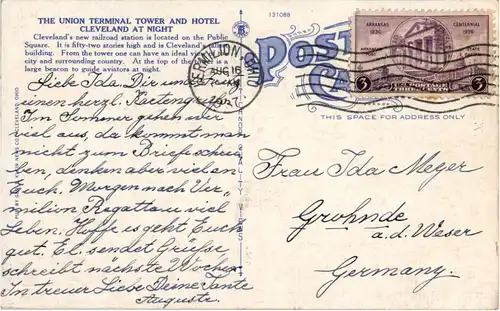 THE UNION TERMINAL TOWER AND HOTEL
CLEVELAND AT NIGHT
Cleveland's new railroad station is located on the Public
Square. It is fifty-two stories high and is Cleveland's
building. From the tower one can have an ideal view
city and surrounding country. At the top of the is a
large beacon to guide aviators at night.
131088
VERMILION, OHIO
AUG 16
POST
CA
ARKANSAS
1836
CENTENNIAL
1936
U.S. POSTAGE
THREE CENTS
3
3
THIS SPACE FOR ADDRESS ONLY
Liebe Ida. Dir und
einen herzl. Kartengruß
Im Sommer gehen wir
viel aus, da kommt man
nicht zum Briefe schrei
ben, denken aber viel an
Euch. Morgen nach Ver
milion Regatta u. viel
Leben. Hoffe es geht Euch
gut. El. sendet Grüsse
schreibt nächste Woche.
In treuer Liebe Deine Tante
Auguste.
Frau Ida Meyer
Grohnde
a.d. Weser
Germany.